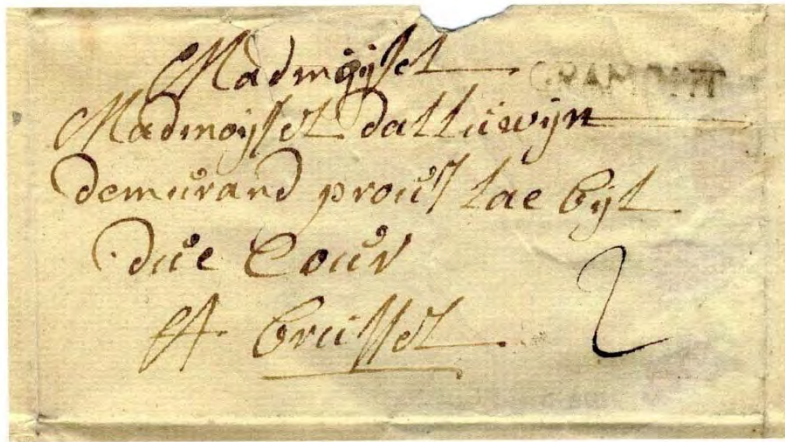 Madmoÿsel
GRAMONT
Madmoÿsel dalluwijn
demurand prous lae Bijl
due Cour
A Brussel
2